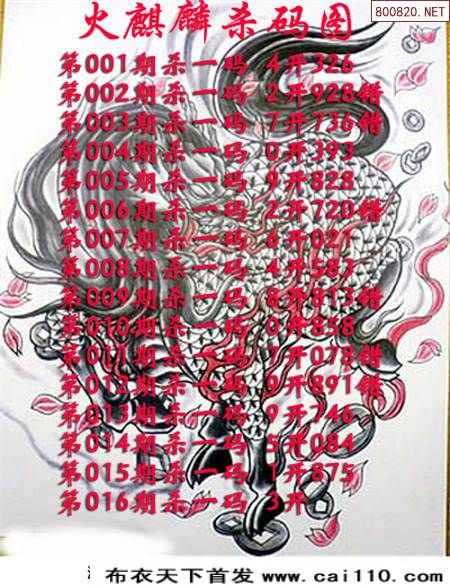 火麒麟杀码图
800820.NET
第001期杀一码 4开326
第002期杀一码 2开928错
第003期杀一码 7开736错
第004期杀一码 0开393
第005期杀一码 9开828
第006期杀一码 2开720错
第007期杀一码 6开021
第008期杀一码 4开583
第009期杀一码 8开813错
第010期杀一码 0开858
第011期杀一码 7开078错
第012期杀一码 9开891错
第013期杀一码 9开746
第014期杀一码 5开084
第015期杀一码 1开875
第016期杀一码 3开
布衣天下首发 www.cai110.com